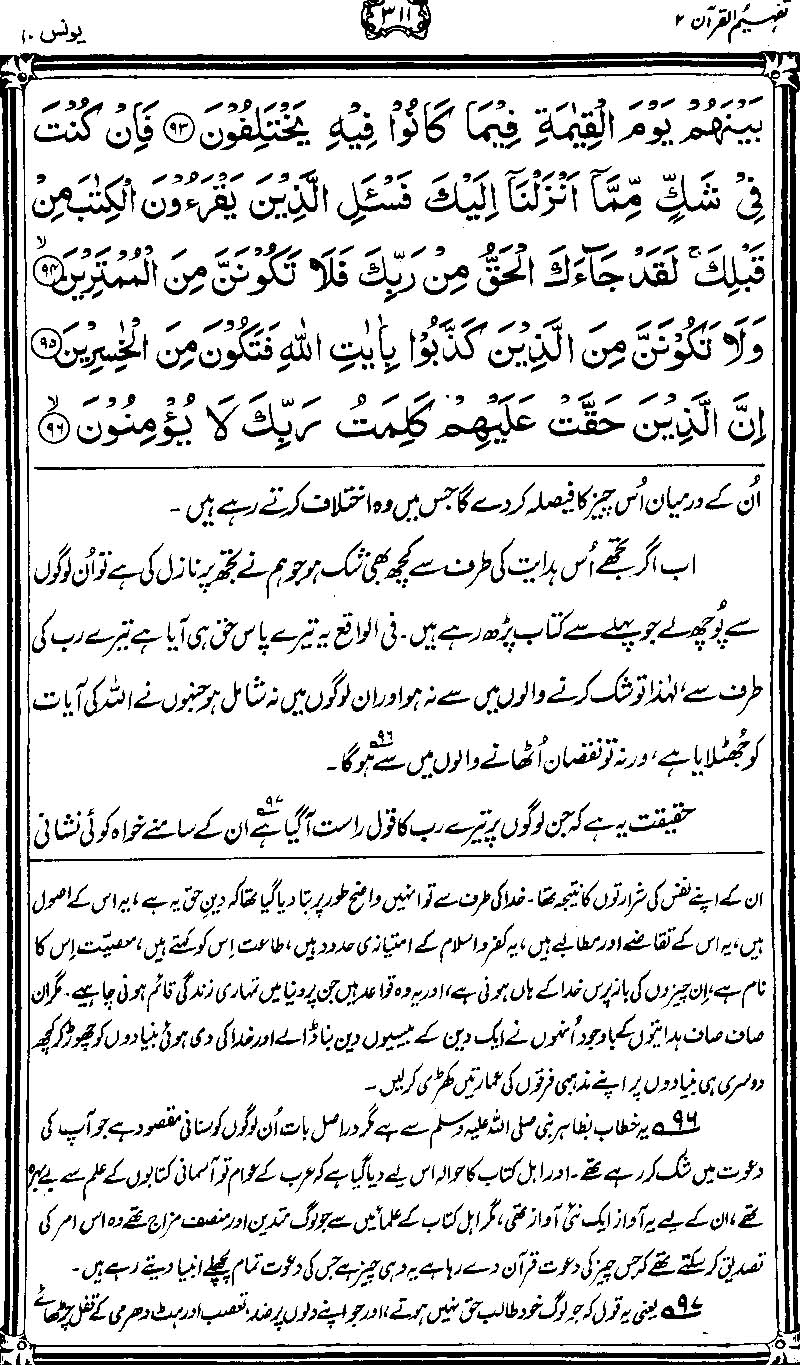 تفہیم القرآن ۲
۳۱۱
یونس ۱۰
بَيْنَهُمْ يَوْمَ الْقِيٰمَةِ فِيْمَا كَانُوْا فِيْهِ يَخْتَلِفُوْنَ ﴿۹۳﴾ فَاِنْ كُنْتَ
فِيْ شَكٍّ مِّمَّآ اَنْزَلْنَآ اِلَيْكَ فَسْـَٔلِ الَّذِيْنَ يَقْرَءُوْنَ الْكِتٰبَ مِنْ
قَبْلِكَ ۚ لَقَدْ جَآءَكَ الْحَقُّ مِنْ رَّبِّكَ فَلَا تَكُوْنَنَّ مِنَ الْمُمْتَرِيْنَ ﴿۹۴﴾ۙ
وَلَا تَكُوْنَنَّ مِنَ الَّذِيْنَ كَذَّبُوْا بِاٰيٰتِ اللّٰهِ فَتَكُوْنَ مِنَ الْخٰسِرِيْنَ ﴿۹۵﴾
اِنَّ الَّذِيْنَ حَقَّتْ عَلَيْهِمْ كَلِمَتُ رَبِّكَ لَا يُؤْمِنُوْنَ ﴿۹۶﴾ۙ
اُن کے درمیان اُس چیز کا فیصلہ کر دے گا جس میں وہ اختلاف کرتے رہے ہیں۔
اب اگر تجھے اُس ہدایت کی طرف سے کچھ بھی شک ہو جو ہم نے تجھ پر نازل کی ہے تو اُن لوگوں
سے پُوچھ لے جو پہلے سے کتاب پڑھ رہے ہیں۔ فی الواقع یہ تیرے پاس حق ہی آیا ہے تیرے رب کی
طرف سے، لہٰذا تو شک کرنے والوں میں سے نہ ہو اور ان لوگوں میں نہ شامل ہو جنہوں نے اللہ کی آیات
کو جُھٹلایا ہے، ورنہ تو نقصان اُٹھانے والوں میں سے ہوگا۔ ۹۶
حقیقت یہ ہے کہ جن لوگوں پر تیرے رب کا قول راست آگیا ہے ۹۷ ان کے سامنے خواہ کوئی نشانی
ان کے اپنے نفس کی شرارتوں کا نتیجہ تھا۔ خدا کی طرف سے تو انہیں واضح طور پر بتا دیا گیا تھا کہ دینِ حق یہ ہے، یہ اس کے اصول
ہیں، یہ اس کے تقاضے اور مطالبے ہیں، یہ کفر و اسلام کے امتیازی حدود ہیں، طاعت اِس کو کہتے ہیں، معصیت اِس کا
نام ہے، اِن چیزوں کی باز پرس خدا کے ہاں ہونی ہے، اور یہ وہ قواعد ہیں جن پر دنیا میں تمہاری زندگی قائم ہونی چاہیے۔ مگر ان
صاف صاف ہدایتوں کے باوجود اُنھوں نے ایک دین کے بیسیوں دین بنا ڈالے اور خدا کی دی ہوئی بنیادوں کو چھوڑ کر کچھ
دوسری ہی بنیادوں پر اپنے مذہبی فرقوں کی عمارتیں کھڑی کر لیں۔
۹۶ یہ خطاب بظاہر نبی صلی اللہ علیہ وسلم سے ہے مگر دراصل بات اُن لوگوں کو سنانی مقصود ہے جو آپ کی
دعوت میں شک کر رہے تھے۔ اور اہل کتاب کا حوالہ اس لیے دیا گیا ہے کہ عرب کے عوام تو آسمانی کتابوں کے علم سے بے بہرہ
تھے، ان کے لیے یہ آواز ایک نئی آواز تھی، مگر اہل کتاب کے علماء میں سے جو لوگ متدین اور منصف مزاج تھے وہ اس امر کی
تصدیق کر سکتے تھے کہ جس چیز کی دعوت قرآن دے رہا ہے یہ وہی چیز ہے جس کی دعوت تمام پچھلے انبیا دیتے رہے ہیں۔
۹۷ یعنی یہ قول کہ جو لوگ خود طالب حق نہیں ہوتے، اور جو اپنے دلوں پر ضد، تعصب اور ہٹ دھرمی کے قفل چڑھائے